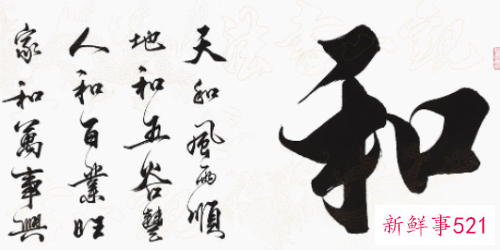 和
天和風雨順
地和五谷豐
人和百業旺
家和萬事興
新鲜事521